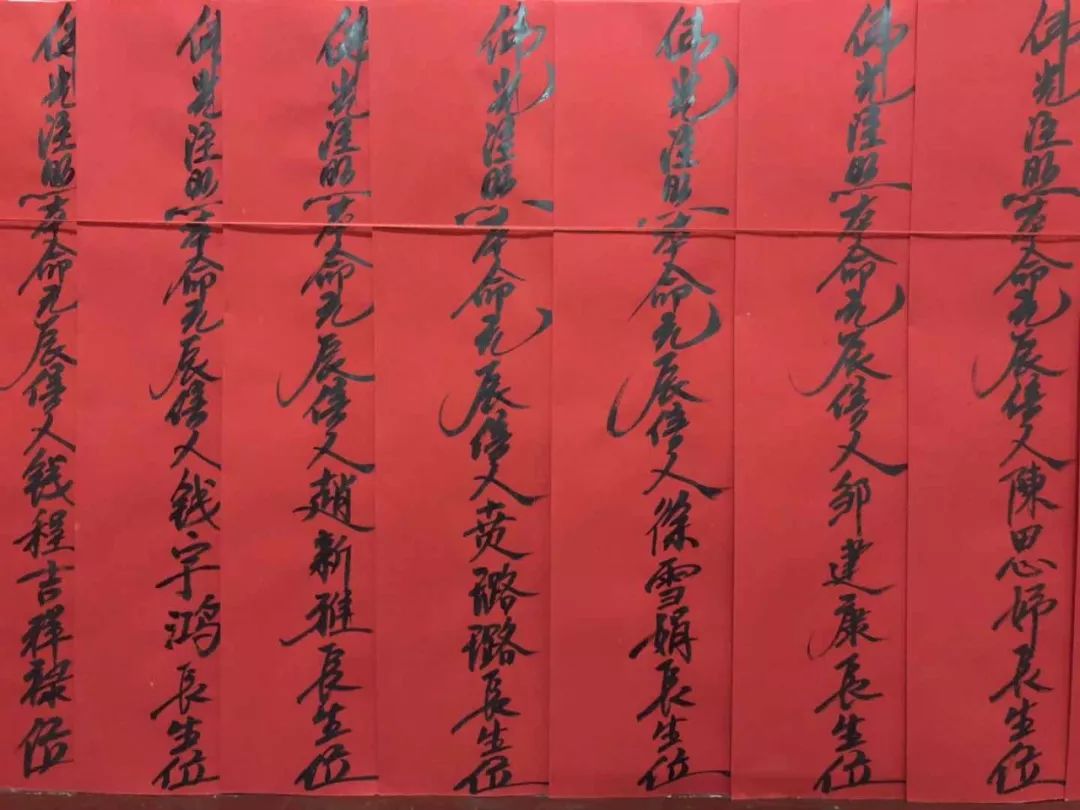 佛光注照本命元辰信人陳思婷長生位
佛光注照本命元辰信人邹建康長生位
佛光注照本命元辰信人徐雪娟長生位
佛光注照本命元辰信人贲璐璐長生位
佛光注照本命元辰信人趙新雅長生位
佛光注照本命元辰信人钱宇鸿長生位
佛光注照本命元辰信人钱程吉祥禄位